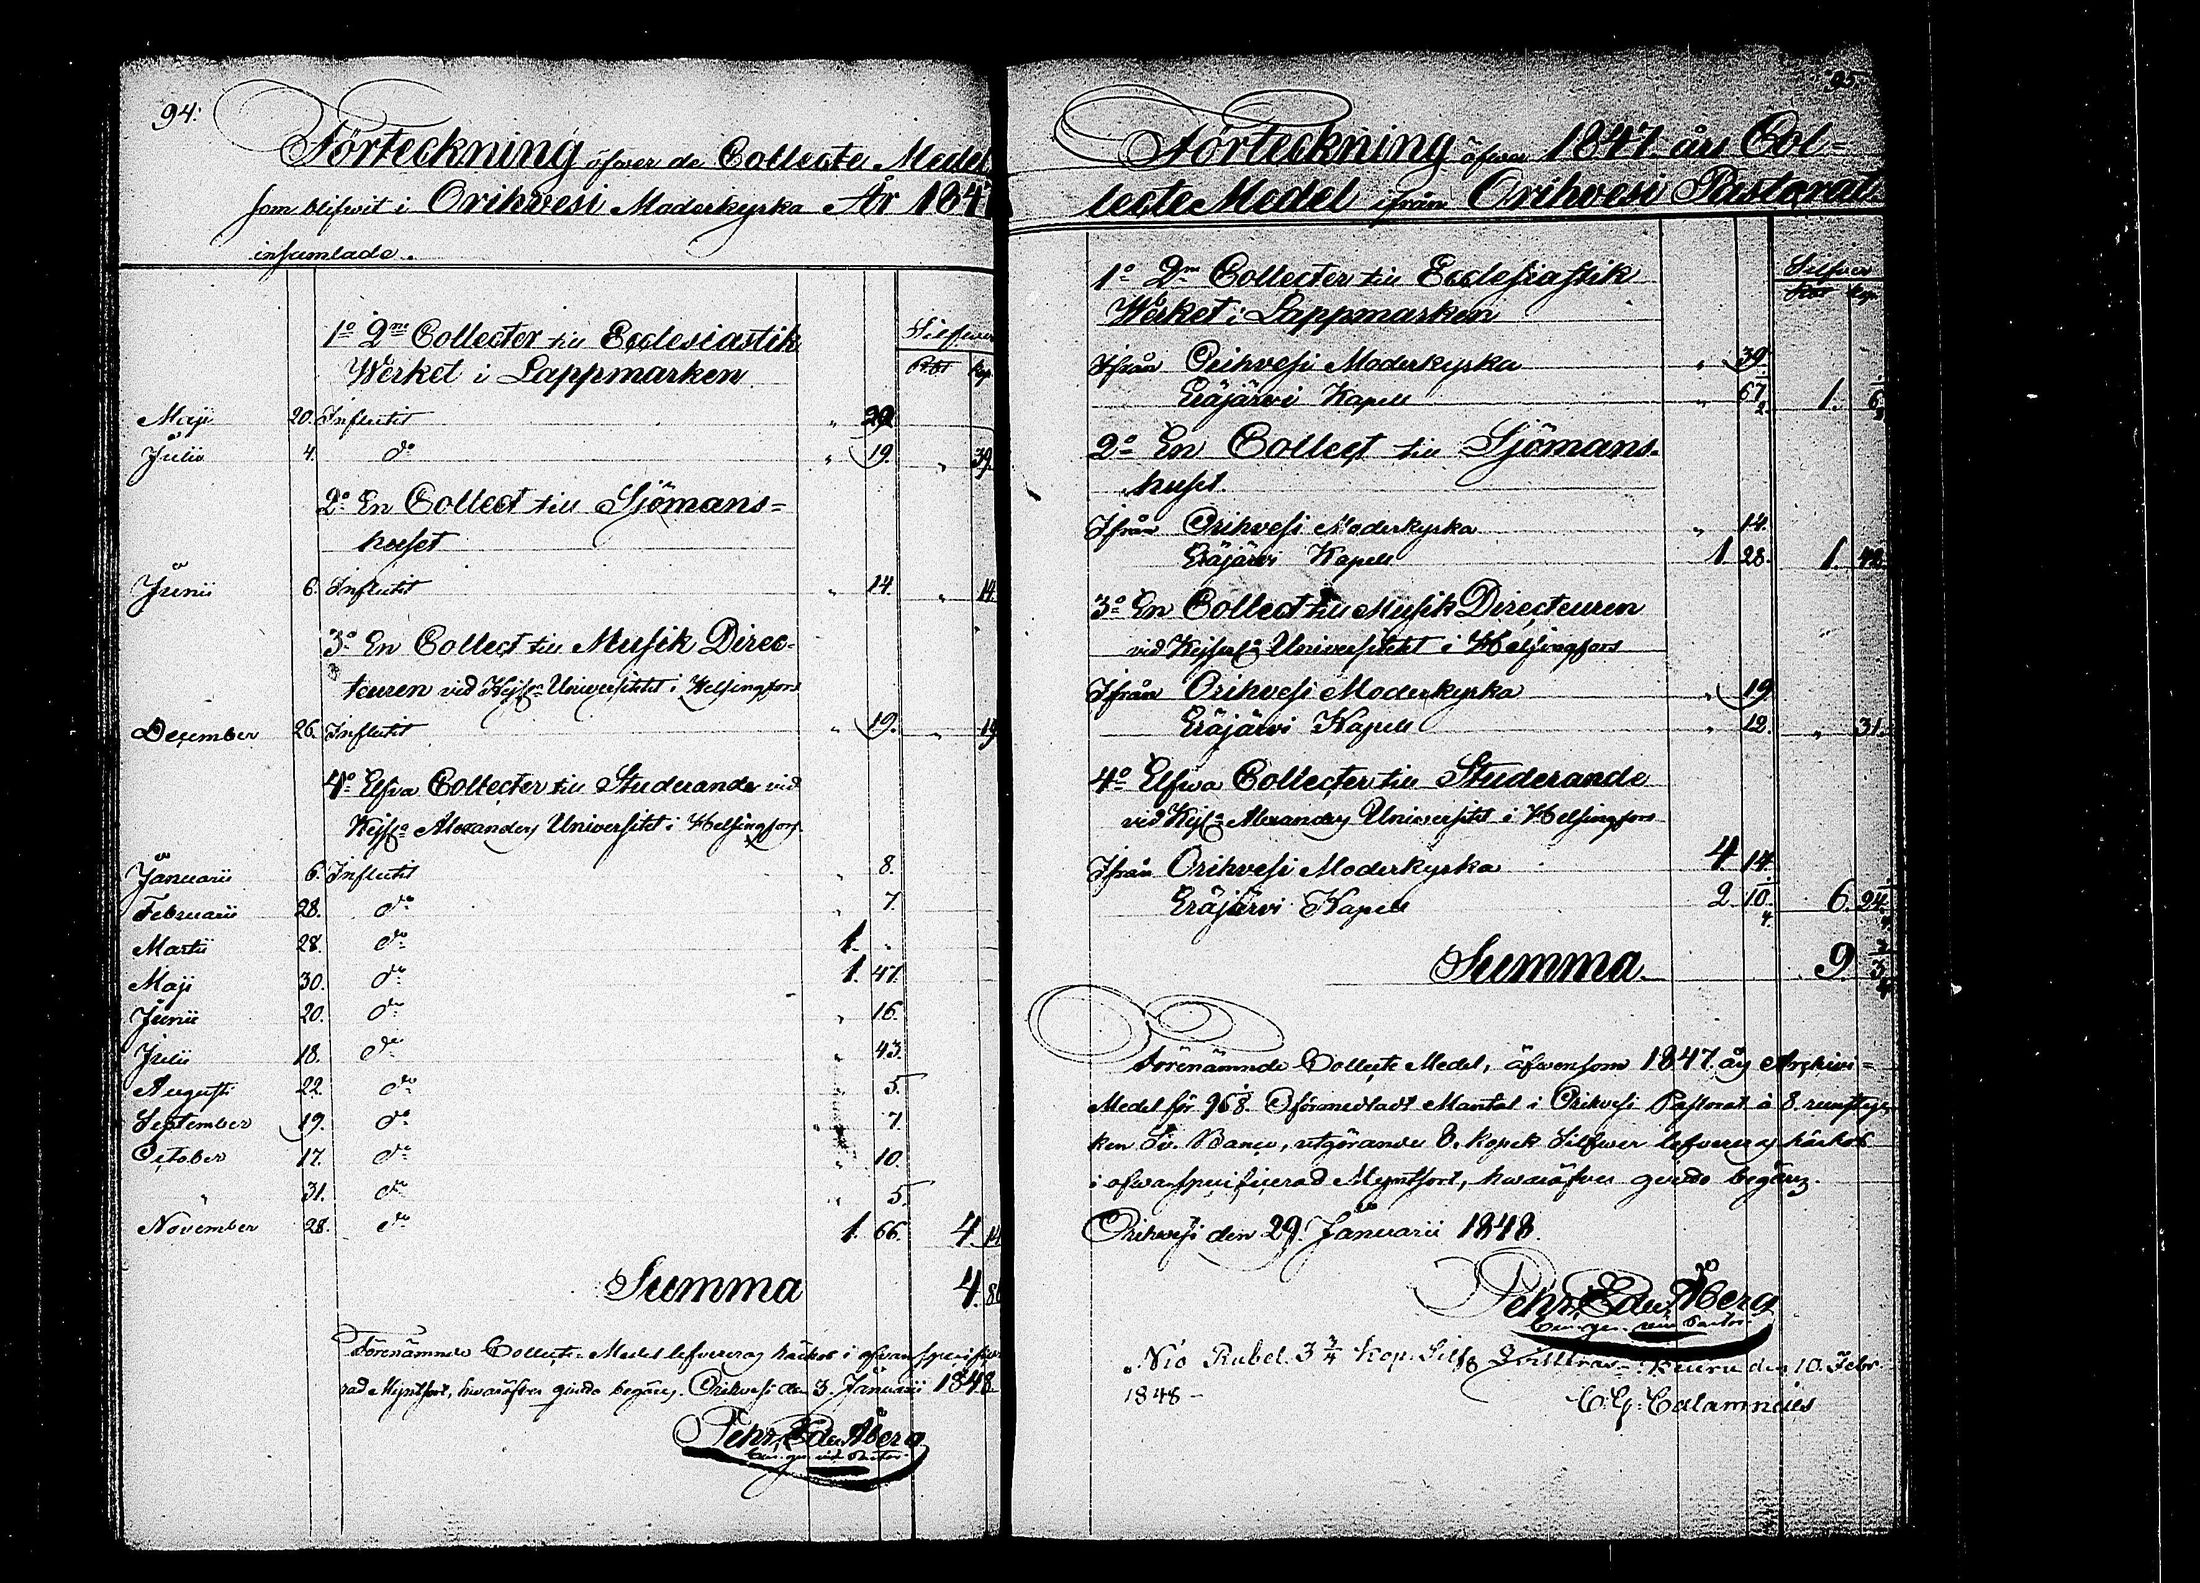 94.
Förteckning öfver de Collecte Medel,
som blifwit i Orihvesi Moderkyrka År 1847
insamlade.
Silfwer
Rbl Kop
1o 2ne Collecter till Ecclesiastik
Werket i Lappmarken
Maji 20. Influtit " 20.
Julii 4. do " 19. " 39.
2o En Collect till Sjömans=
huset
Junii 6. Influtit " 14. " 14.
3o En Collect till Musik Direc-
teuren vid Kejs. Universitetet i Helsingfors
December 26. Influtit " 19. " 19
4o Elfva Collecter till Studerande vid
Kejs. Alexanders Universitet i Helsingfors.
Januarii 6. Influtit " 8.
Februarii 28. do " 7.
Martii 28. do 1. "
Maji 30. do 1. 47.
Junii 20. do " 16.
Julii 18. do " 43.
Augusti 22. do " 5.
September 19. do " 7.
October 17. do " 10.
" 31. do " 5.
November 28. do 1. 66. 4. 14
Summa 4. 86
Förenämnde Collecte Medel lefvereras härhos i ofvanspecifice-
rad Myntsort, hvaröfver quitto begäres. Orihvesi den 3. Januarii 1848
Pehr Edv. Åberg
95.
Förteckning öfver 1847 års Col=
lecte Medel ifrån Orihvesi Pastorat.
Silfver
Rbl Kop
1o 2ne Collecter till Ecclesiastik
Werket i Lappmarken
Ifrån Orihvesi Moderkyrka " 39.
Eräjärvi Kapell " 67 1/2. 1. 6 1/2
2o En Collect till Sjömans-
huset.
Ifrån Orihvesi Moderkyrka " 14.
Eräjärvi Kapell 1. 28. 1. 42.
3o En Collect till Musik Directeuren
vid Kejserl. Universitetet i Helsingfors
Ifrån Orihvesi Moderkyrka " 19
Eräjärvi Kapell " 12. " 31.
4o Elfva Collecter till Studerande
vid Kejs. Alexanders Universitet i Helsingfors
Ifrån Orihvesi Moderkyrka 4 14.
Eräjärvi Kapell 2 10 1/4. 6. 24 1/4
Summa. 9 3 3/4
Förenämnde Collecte Medel, äfvensom 1847 års Archivi=
Medel för 968. Oförmedladt Mantal i Orihvesi Pastorat à 8. runstyc-
ken Sv. Banco, utgörande 8. kopek Silfver lefvereras härhos
i ofvanspecificerad Myntsort, hvaröfver quitto begäres.
Orihvesi den 29. Januarii 1848.
Pehr Edv. Åberg
Nio Rubel 3 3/4 Kop. Silfr Qvitteras. Keuru den 10. Febr
1848 –
C. G. Calamnius